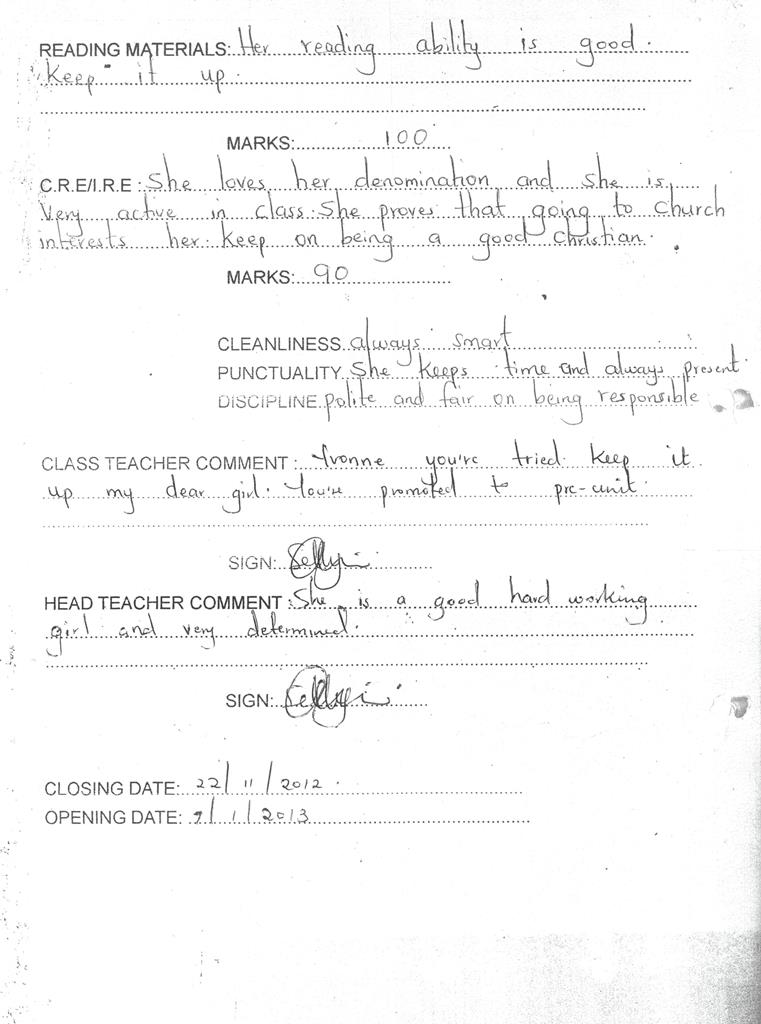 READING MATERIALS: Her reading ability is good.
Keep it up.
MARKS: 100
C.R.E/I.R.E : She loves her denomination and she is
very active in class. She proves that going to church
interests her. Keep on being a good christian.
MARKS: 90
CLEANLINESS always smart
PUNCTUALITY She keeps time and always present.
DISCIPLINE polite and fair on being responsible
CLASS TEACHER COMMENT : Yvonne you're tried. Keep it
up my dear girl. You're promoted to pre-unit.
SIGN:
HEAD TEACHER COMMENT : She is a good hard working
girl and very determined.
SIGN:
CLOSING DATE: 22/11/2012.
OPENING DATE: 7/1/2013